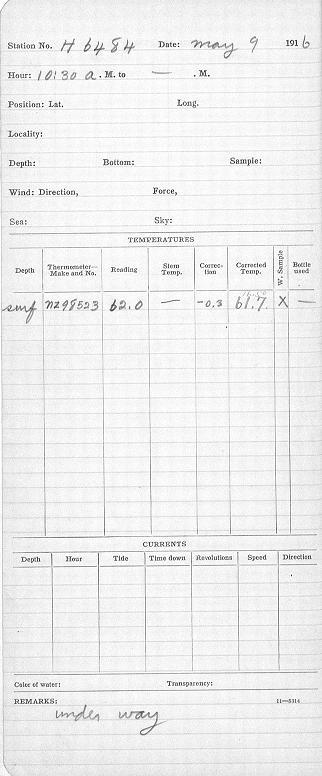 Station No. H 6484 Date: May 9 1916
Hour: 10:30 a. M. to — . M.
Position: Lat. Long.
Locality:
Depth: Bottom: Sample:
Wind: Direction, Force,
Sea: Sky:
TEMPERATURES
Depth Thermometer—Make and No. Reading Stem Temp. Correction Corrected Temp. W. Sample Bottle used
surf NZ98523 62.0 — -0.3 61.7 X —
CURRENTS
Depth Hour Tide Time down Revolutions Speed Direction
Color of water: Transparency:
REMARKS: 11—5314
under way